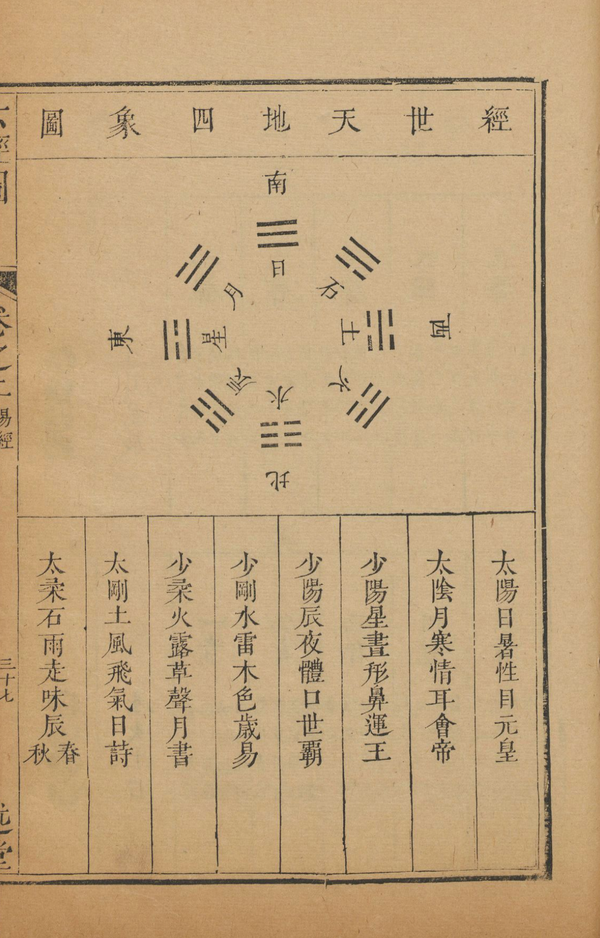 經世天地四象圖
南
日
月
石
東
星
土
西
辰
火
水
北
太陽日暑性目元皇
太陰月寒情耳會帝
少陽星晝形鼻運王
少陽辰夜體口世霸
少剛水雷木色歲易
少柔火露草聲月書
太剛土風飛氣日詩
太柔石雨走味辰春秋
經圖
易經
三十七
堂